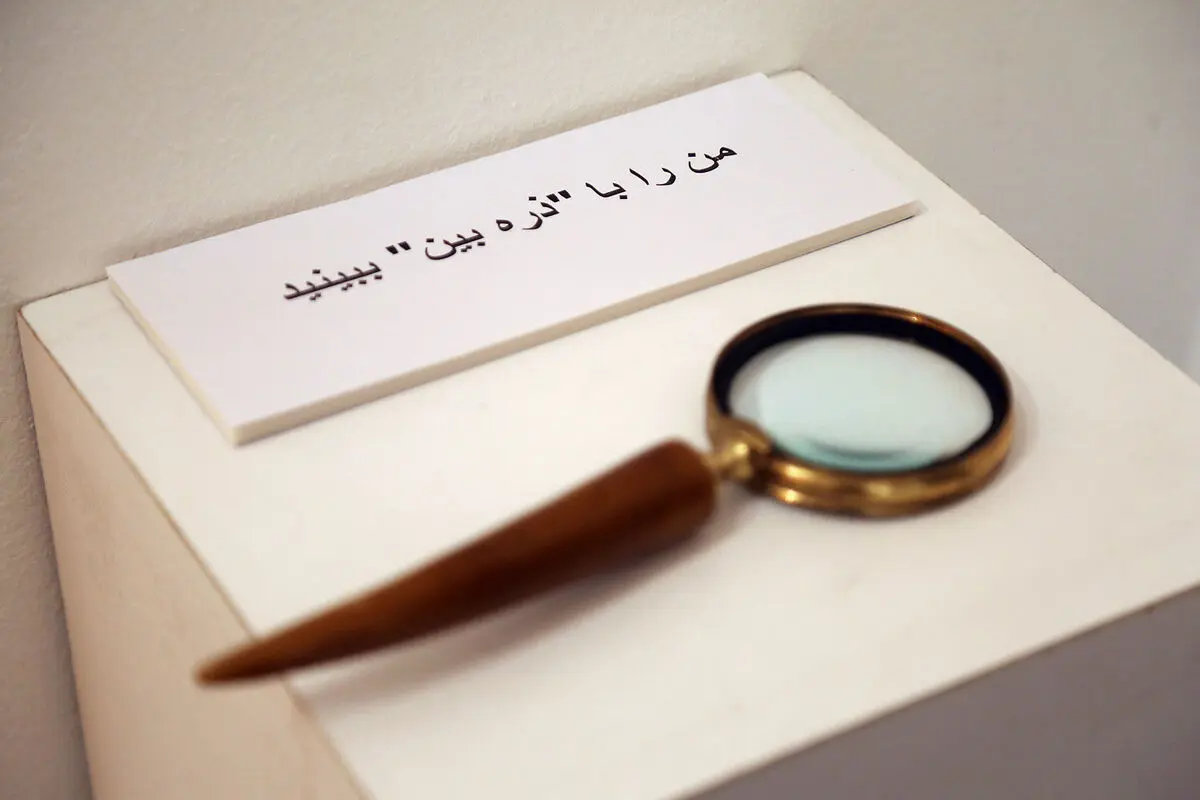 من را با "ذره بین" ببینید